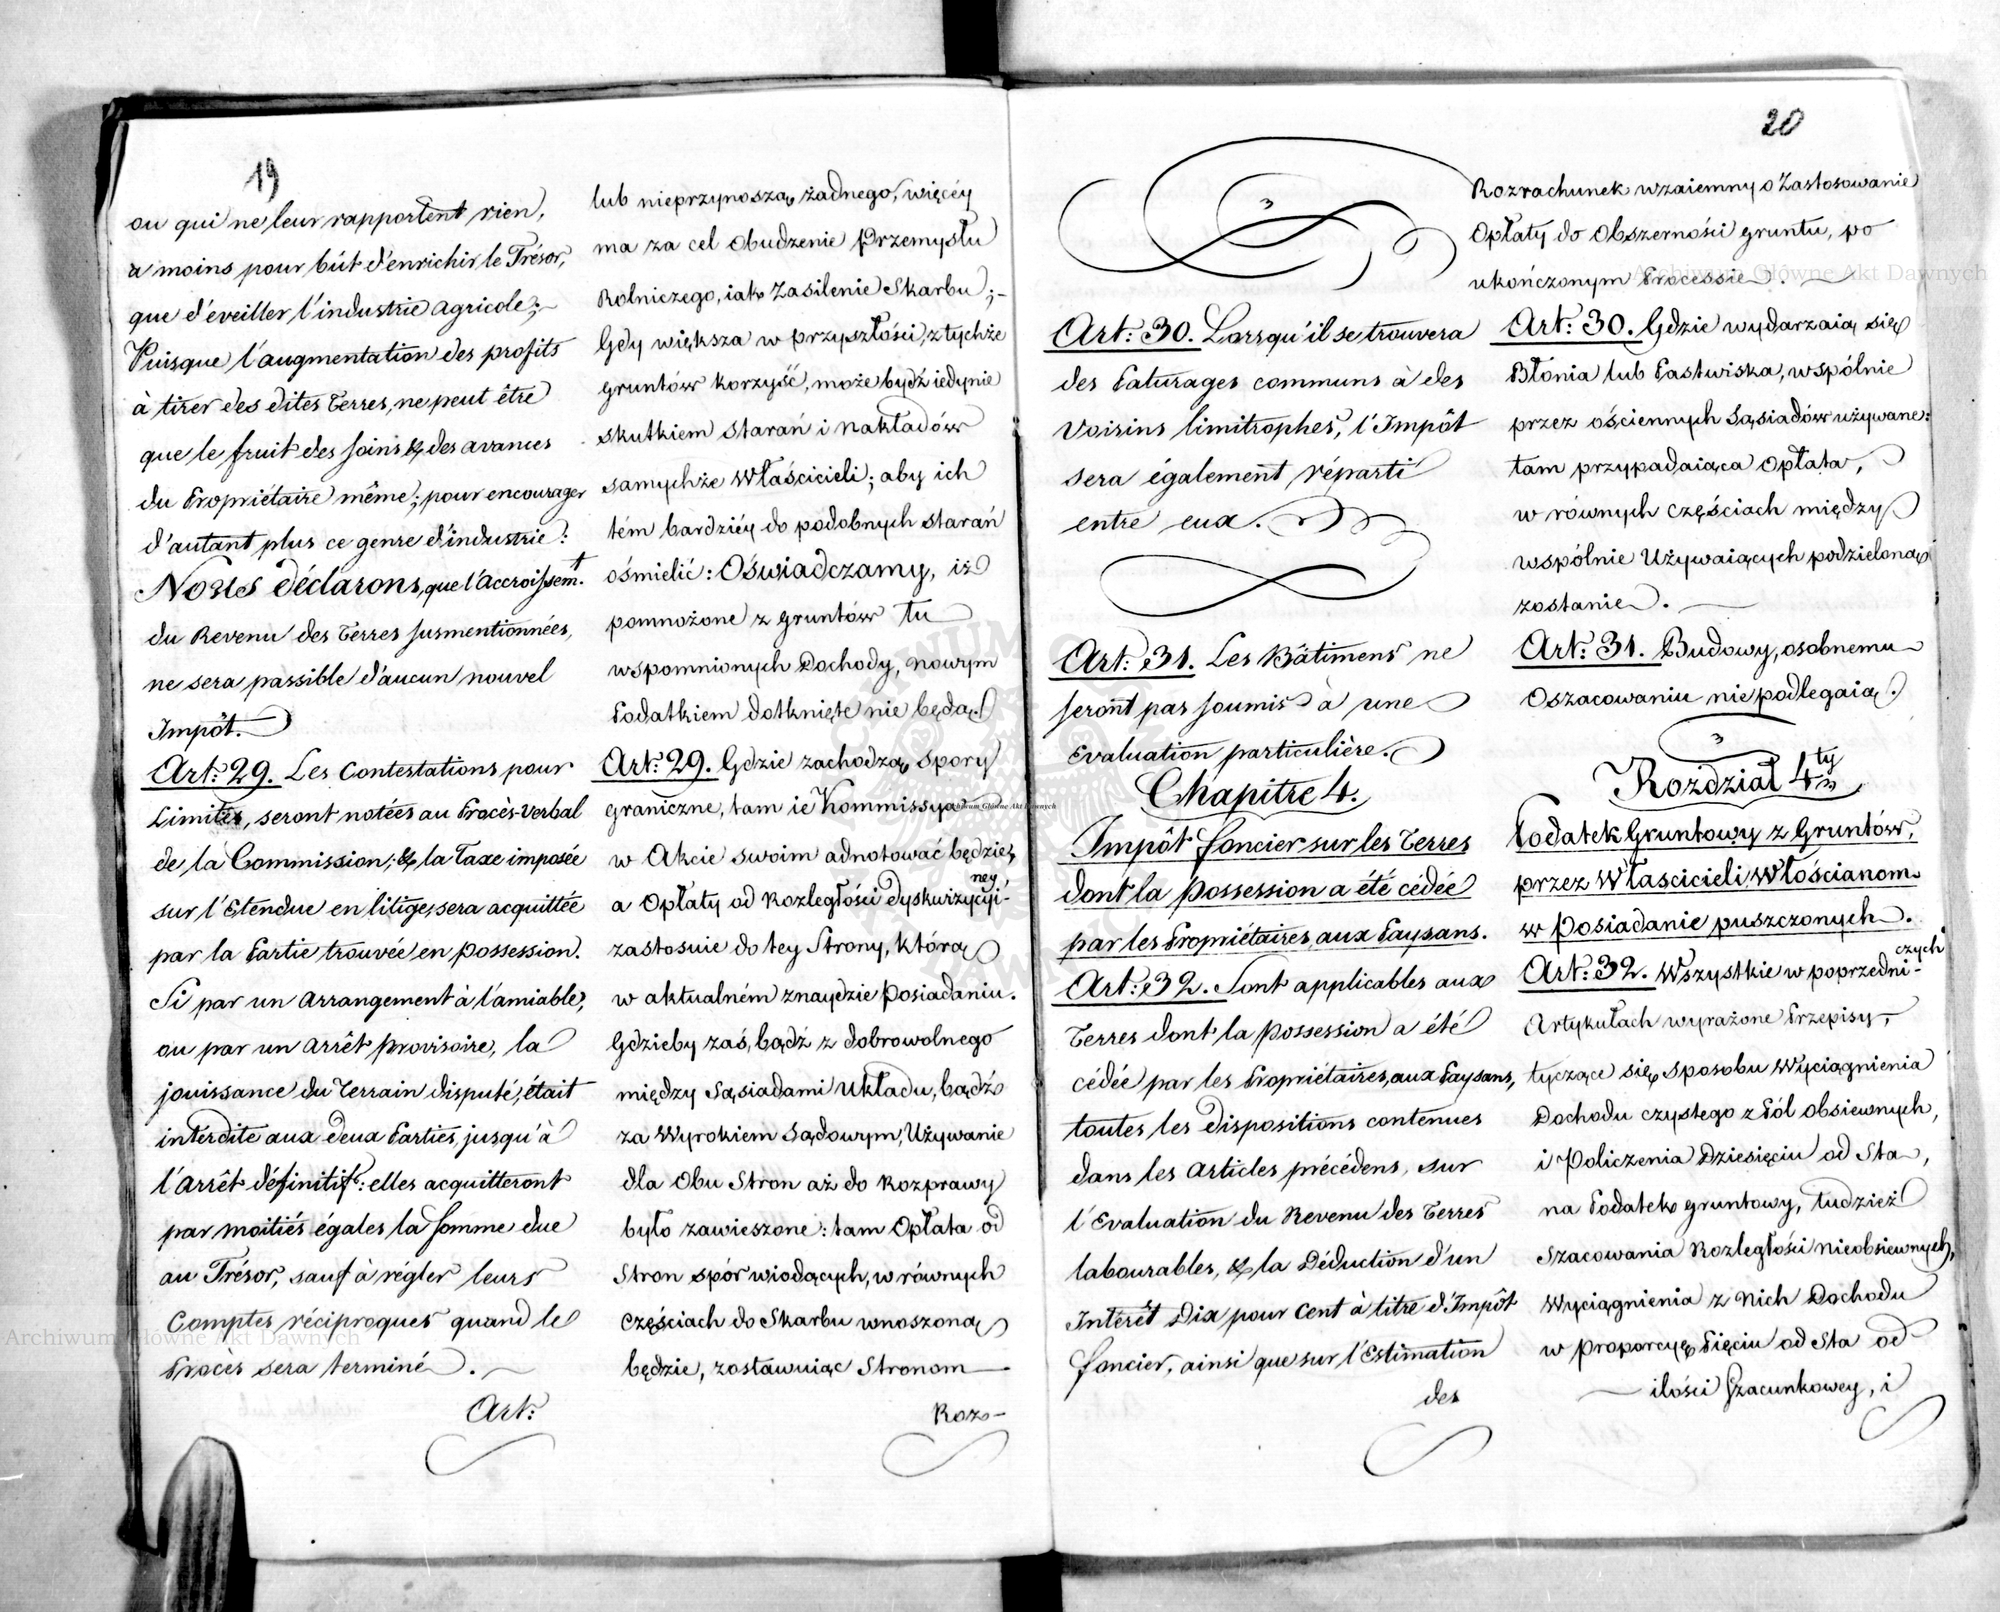 19
ou qui ne leur rapportent rien,
a moins pour bût d'enrichir le Trésor,
que d'éveiller l'industrie agricole;
Puisque l'augmentation des profits
à tirer des dites Terres, ne peut être
que le fruit des soins & des avances
du Propriétaire même; pour encourager
d'autant plus ce genre d'industrie:
Nous déclarons, que l'Accroissemt.
du Revenu des Terres susmentionnées,
ne sera passible d'aucun nouvel
Impôt.
Art: 29. Les Contestations pour
Limites, seront notées au Procès-verbal
de la Commission; & la Taxe imposée
sur l'Etendue en litige, sera acquittée
par la Partie trouvée en possession.
Si par un Arrangement à l'amiable,
ou par un Arrêt provisoire, la
jouissance du Terrain disputé, était
interdite aux deux Parties, jusqu'à
l'arrêt définitif: elles acquitteront
par moitiés égales la somme due
au Trésor, sauf à régler leurs
Comptes réciproques quand le
Procès sera terminé.
Art:
lub nieprzynoszą żadnego, więcéy
ma za cel obudzenie Przemysłu
Rolniczego, iak Zasilenie Skarbu;-
Gdy większa w przyszłości, z tychże
gruntów korzyść, może bydź iedynie
skutkiem starań i nakładów
samychże Właścicieli; aby ich
tém bardziéy do podobnych starań
ośmielić: Oświadczamy, iż
pomnożone z gruntów tu
wspomnionych Dochody, nowym
Podatkiem dotknięte nie będą.
Art: 29. Gdzie zachodzą spory
graniczne, tam ie Kommissya
w Akcie swoim adnotować będzie,
a Opłaty od Rozległości dyskwizycyi-
ney,
zastosuie do tey Strony, która
w aktualném znaydzie Posiadaniu.
Gdzieby zaś, bądź z dobrowolnego
między Sąsiadami Układu, bądź
za Wyrokiem Sądowym, Używanie
dla Obu Stron aż do Rozprawy
było zawieszone: tam Opłata od
Stron spór wiodących, w równych
Częściach do Skarbu wnoszona
będzie, zostawuiąc Stronom
Roz-
20
Rozrachunek wzaiemny o Zastosowanie
Opłaty do Obszerności gruntu, po
ukończonym Processie.
Art: 30. Lorsqu'il se trouvera
des Paturages communs à des
Voisins limitrophes, l'Impôt
sera également réparti
entre eux.
Art: 31. Les Bâtimens ne
seront pas soumis à une
Evaluation particulière.
Chapitre 4.
Impôt foncier sur les Terres
dont la possession a été cédée
par les Propriétaires aux Paysans.
Art: 32. Sont applicables aux
Terres dont la possession a été
cédée par les Propriétaires, aux Paysans,
toutes les dispositions contenues
dans les Articles précédens, sur
l'Evaluation du Revenu des Terres
labourables, & la Déduction d'un
Intérêt Dix pour Cent à titre d'Impôt
foncier, ainsi que sur l'Estimation
des
Art: 30. Gdzie wydarzaią się
Błonia lub Pastwiska, wspólnie
przez ościennych Sąsiadów używane:
tam przypadaiąca Opłata,
w równych Częściach między
wspólnie Używaiących podzieloną
zostanie.
Art: 31. Budowy, osobnemu
Oszacowaniu nie podlegaią.
Rozdział 4ty
Podatek Gruntowy z Gruntów,
przez Właścicieli Włościanom
w Posiadanie puszczonych.
Art: 32. Wszystkie w poprzedni-
czych
Artykułach wyrażone Przepisy,
tyczące się sposobu Wyciągnienia
Dochodu czystego z Pól obsiewnych,
i Policzenia Dziesięciu od Sta,
na Podatek gruntowy, tudzież
Szacowania Rozległości nieobsiewnych,
Wyciągnienia z nich Dochodu
w proporcyę Pięciu od Sta od
ilości Szacunkowey, i
Archiwum Główne Akt Dawnych
Archiwum Główne Akt Dawnych
Archiwum Główne Akt Dawnych